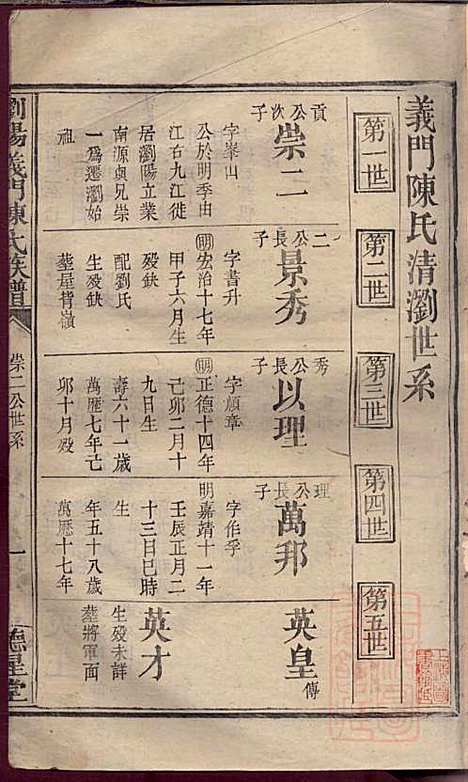 義門陳氏清瀏世系
第一世
第二世
第三世
第四世
第五世
貢公次子
崇二
字峯山
公於明季由
江右九江徙
居瀏陽立業
南源與兄崇
一為遷瀏始
祖
二公長子
景秀
字書升
明宏治十七年
甲子六月生
殁缺
配劉氏
生殁缺
塟屋背嶺
秀公長子
以理
字順章
明正德十四年
己卯二月十
九日生
壽六十一歲
萬歷七年己
卯十月殁
理公長子
萬邦
字伯孚
明嘉靖十一年
壬辰正月二
十三日巳時
生
年五十八歲
萬歷十七年
英皇傳
英才
生殁未詳
塟將軍面
瀏陽義門陳氏族譜
崇二公世系
一
德星堂